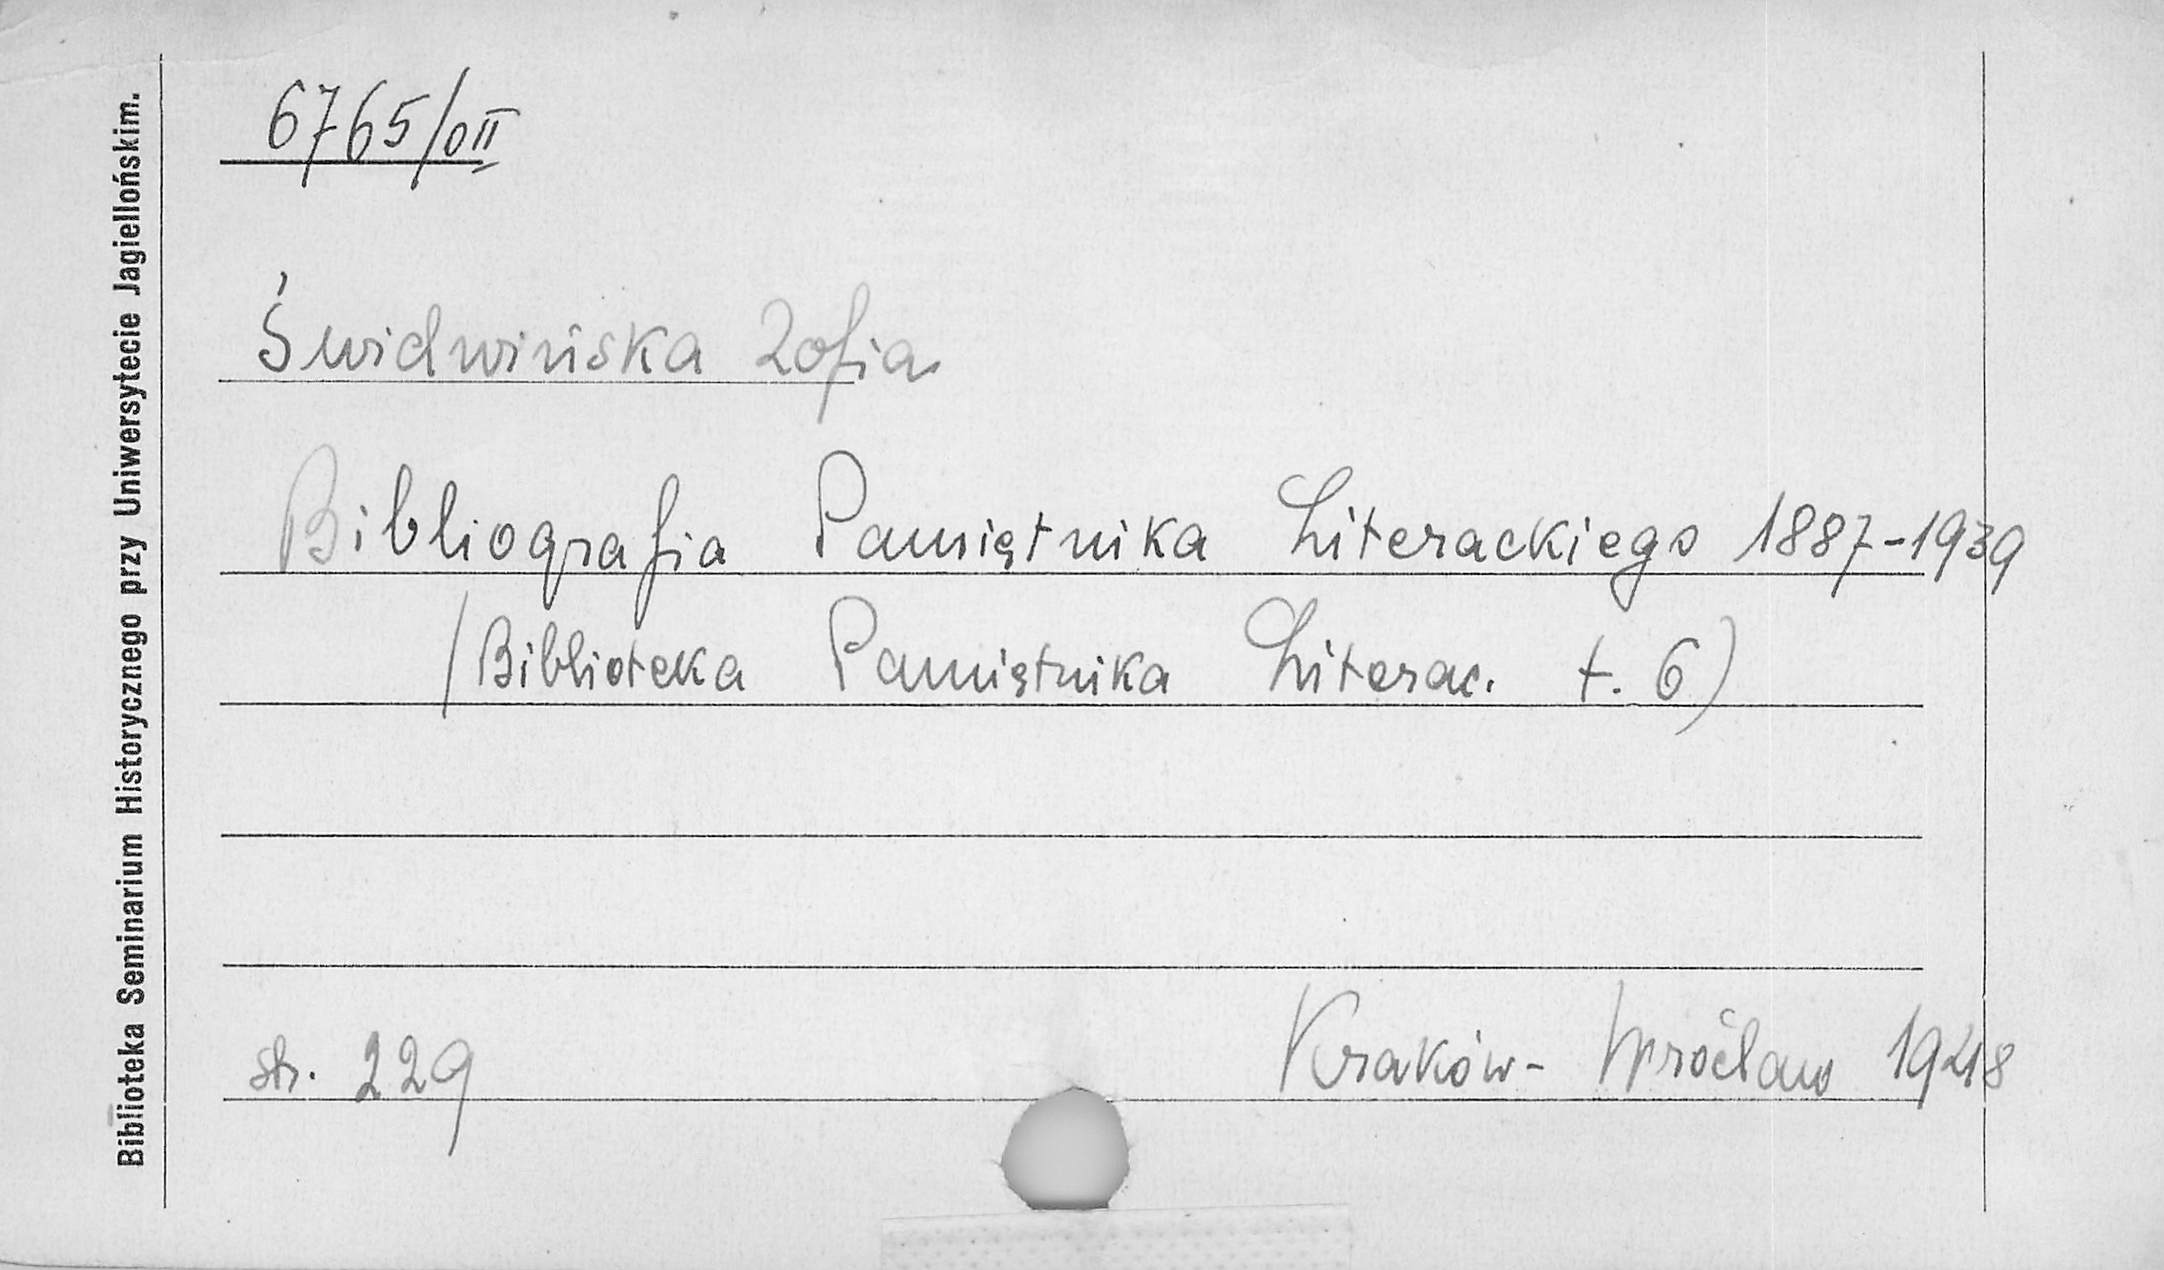 Biblioteka Seminarium Historycznego przy Uniwersytecie Jagiellońskim.
6765/OII
Świdwińska Zofia
Bibliografia Pamiętnika Literackiego 1887-1939
/Biblioteka Pamiętnika Literac. t. 6)
str. 229
Kraków- Wrocław 1948